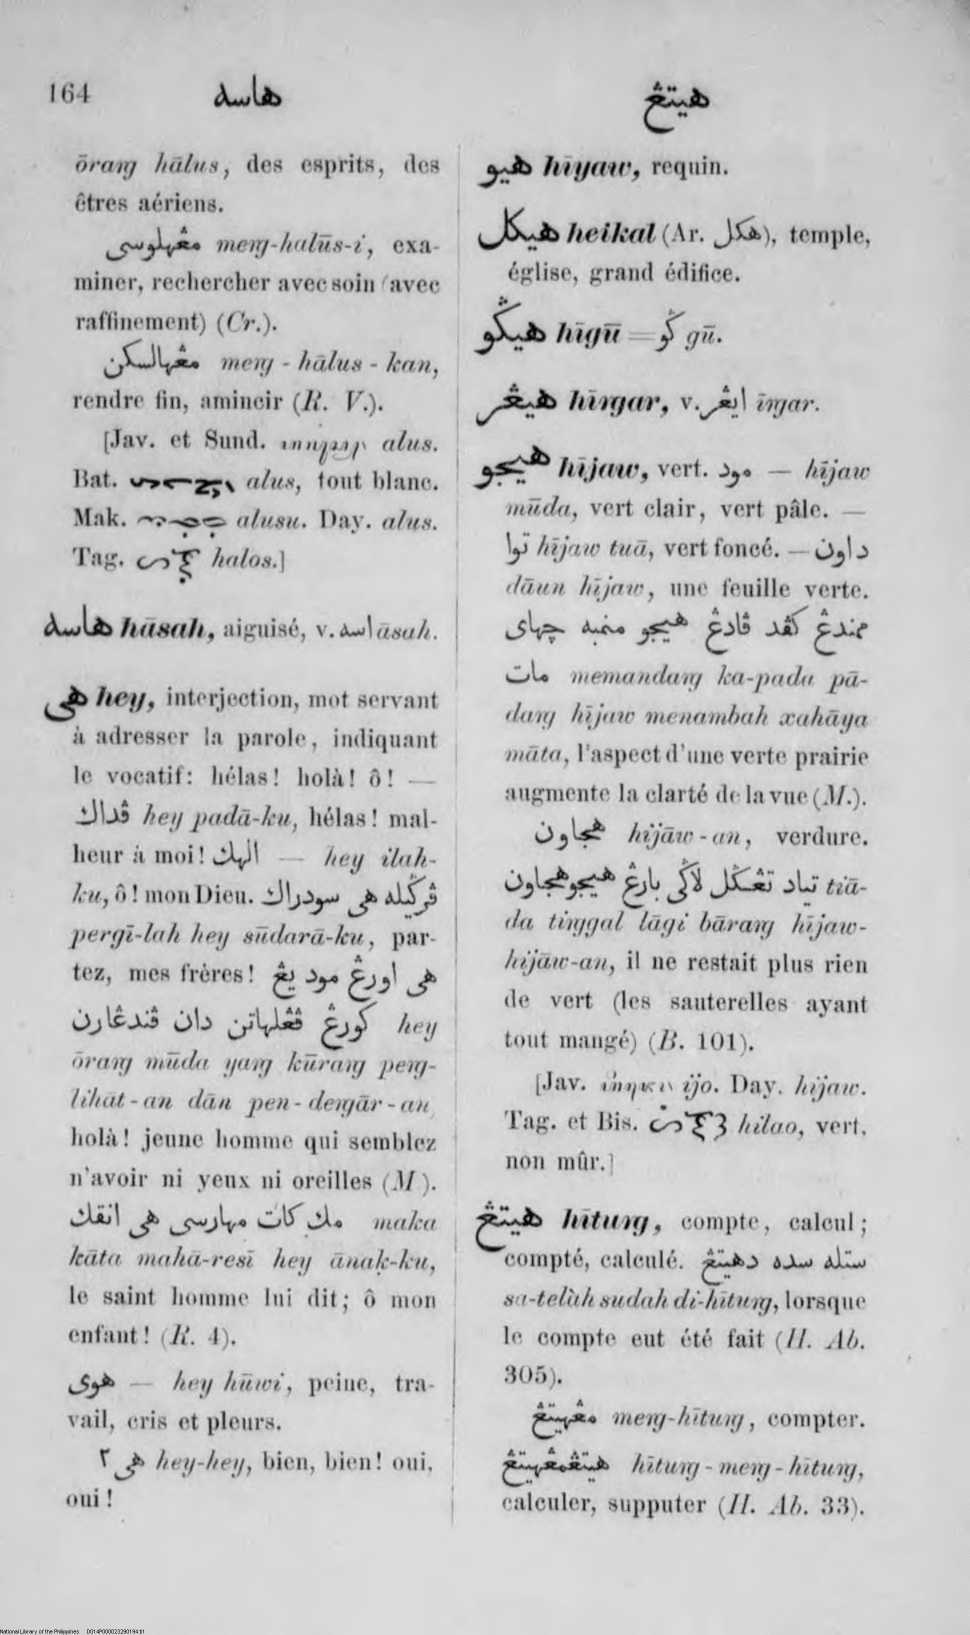 164 هاسه هيتڠ
ōraṇg hālus, des esprits, des
êtres aériens.
مڠهلوسى meṇg-halūs-i, exa-
miner, rechercher avec soin (avec
raffinement) (Cr.).
مڠهالسكن meṇg-hālus-kan,
rendre fin, amincir (R. V.).
[Jav. et Sund. alus.
Bat. alus, tout blanc.
Mak. alusu. Day. alus.
Tag. halos.]
هاسه hāsah, aiguisé, v. اسه āsah.
هى hey, interjection, mot servant
à adresser la parole, indiquant
le vocatif: hélas! holà! ô! —
ڤداك hey padā-ku, hélas! mal-
heur à moi! الهك — hey ilah-
ku, ô! mon Dieu. ڤرڬيله هى سودراك
pergī-lah hey sūdarā-ku, par-
tez, mes frères! هى اورڠ مود يڠ
كورڠ ڤڠلهاتن دان ڤندڠارن hey
ōraṇg mūda yaṇg kūraṇg peṇg-
lihāt-an dān pen-deṇgār-an,
holà! jeune homme qui semblez
n'avoir ni yeux ni oreilles (M).
مك كات مهارسى هى انقك maka
kāta mahā-resī hey ānaḳ-ku,
le saint homme lui dit; ô mon
enfant! (R. 4).
هوى — hey hūwi, peine, tra-
vail, cris et pleurs.
هى ٢ hey-hey, bien, bien! oui,
oui!
هيو hīyaw, requin.
هيكل heikal (Ar. هكل), temple,
église, grand édifice.
هيڬو hīgū = ڬو gū.
هيڠر hīṇgar, v. ايڠر īṇgar.
هيجو hījaw, vert. مود — hījaw
mūda, vert clair, vert pâle. —
توا hījaw tuā, vert foncé. — داون
dāun hījaw, une feuille verte.
ممندڠ كڤد ڤادڠ هيجو منمبه چهاى
مات memandaṇg ka-pada pā-
daṇg hījaw menambah xahāya
māta, l'aspect d'une verte prairie
augmente la clarté de la vue (M.).
هجاون hijāw-an, verdure.
تياد تڠڬل لاڬى بارڠ هيجوهجاون tiā-
da tiṇggal lāgi bāraṇg hījaw-
hijāw-an, il ne restait plus rien
de vert (les sauterelles ayant
tout mangé) (B. 101).
[Jav. ijo. Day. hijaw.
Tag. et Bis. hilao, vert,
non mûr.]
هيتڠ hītuṇg, compte, calcul;
compté, calculé. ستله سده دهيتڠ
sa-telàh sudah di-hītuṇg, lorsque
le compte eut été fait (H. Ab.
305).
مڠهيتڠ meṇg-hītuṇg, compter.
هيتڠمڠهيتڠ hītuṇg-meṇg-hītuṇg,
calculer, supputer (H. Ab. 33).
National Library of the Philippines